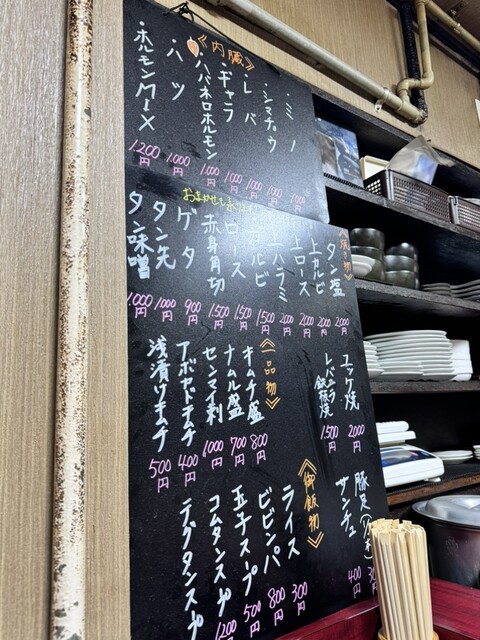 《内臓》
・ミノ 1,000円
・シマチョウ 1,000円
・レバ 1,000円
・ギャラ 1,000円
・ハバネロホルモン 1,000円
・ハツ 1,000円
・ホルモンMIX 1,200円
《焼き物》
タン塩 2,000円
上カルビ 2,000円
上ロース 2,000円
上ハラミ 2,000円
カルビ 1,500円
ロース 1,500円
赤身角切 1,500円
ゲタ 900円
タン先 1,000円
タン味噌 1,000円
ユッケ焼 2,000円
レバニラ鉄板焼 1,500円
《一品物》
キムチ盛 800円
ナムル盛 700円
センマイ刺 1,000円
アボカドキムチ 400円
浅漬けキムチ 500円
豚足
サンチュ 400円
《御飯物》
ライス 300円
ビビンバ 800円
玉子スープ 500円
コムタンスープ 1200
テグタンスープ